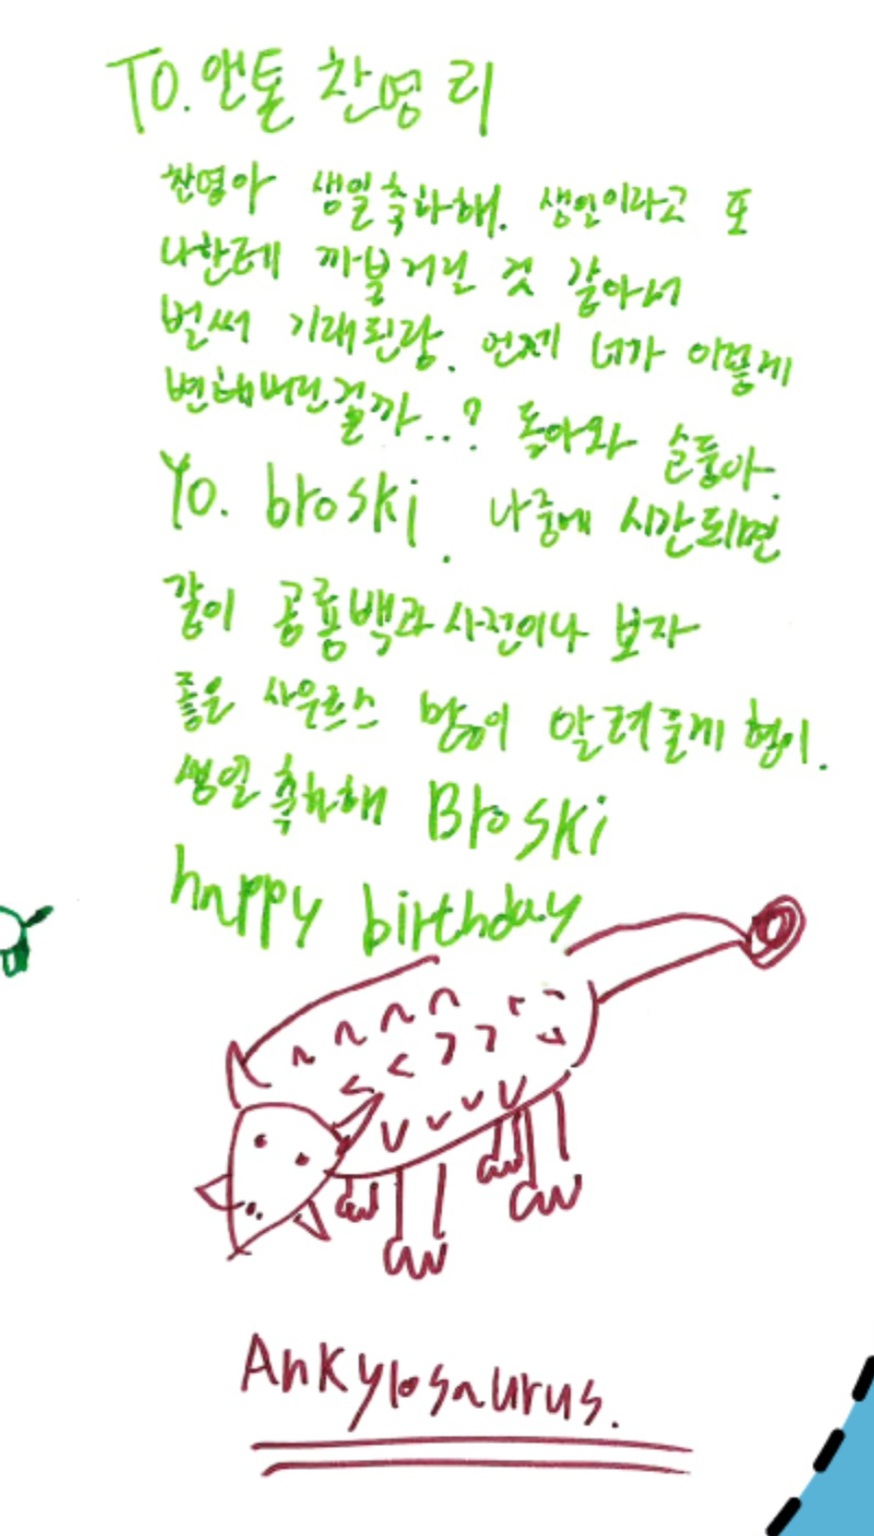 To. 앤톤 찬영 리
찬영아 생일축하해. 생일이라고 또
나한테 까불거릴 것 같아서
벌써 기대된랑. 언제 너가 이렇게
변해버린걸까..? 돌아와 순둥아.
Yo. broski. 나중에 시간되면
같이 공룡백과사전이나 보자
좋은 사우르스 많이 알려줄게 형이.
생일 축하해 Broski
happy birthday
Ankylosaurus.